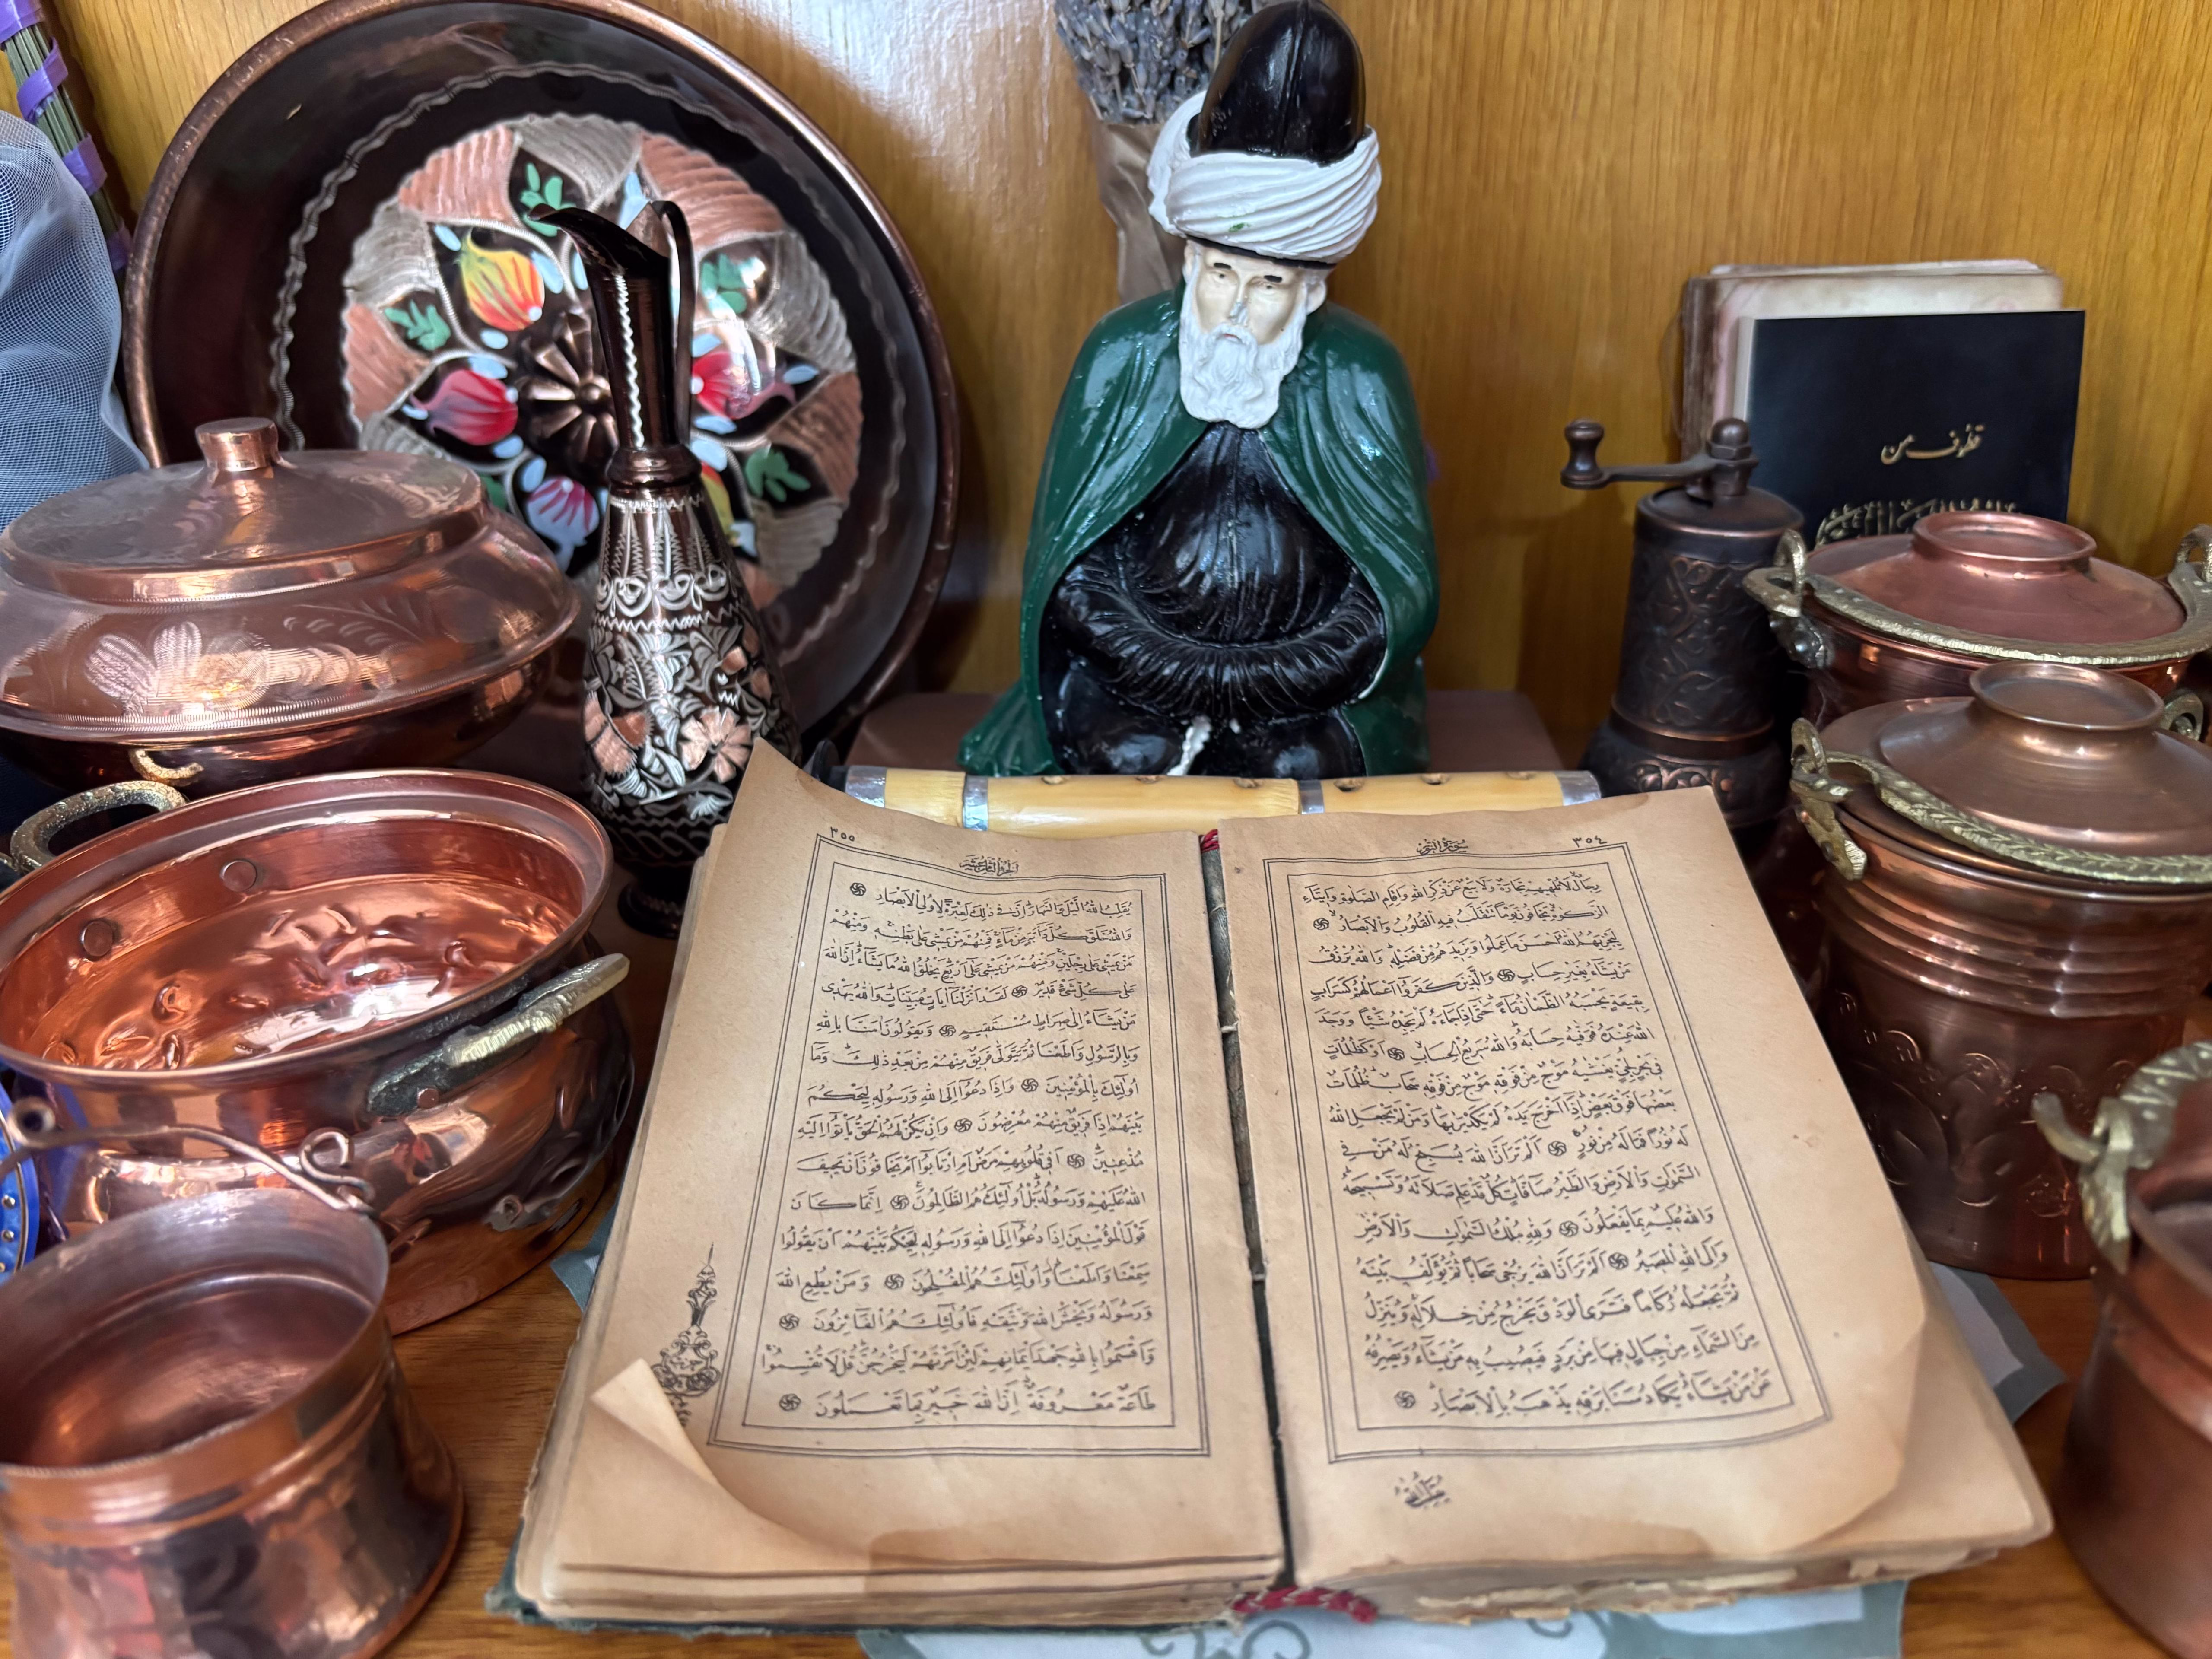 قطوف من
سورة النور
٣٥٤
رِجَالٌ لَا تُلْهِيهِمْ تِجَارَةٌ وَلَا بَيْعٌ عَنْ ذِكْرِ اللهِ وَاِقَامِ الصَّلٰوةِ وَاِيتَاءِ
الزَّكٰوةِ يَخَافُونَ يَوْمًا تَتَقَلَّبُ فِيهِ الْقُلُوبُ وَالْاَبْصَارُ
لِيَجْزِيَهُمُ اللهُ اَحْسَنَ مَا عَمِلُوا وَيَزِيدَهُمْ مِنْ فَضْلِهِ وَاللهُ يَرْزُقُ
مَنْ يَشَاءُ بِغَيْرِ حِسَابٍ وَالَّذِينَ كَفَرُوا اَعْمَالُهُمْ كَسَرَابٍ
بِقِيعَةٍ يَحْسَبُهُ الظَّمْاٰنُ مَاءً حَتّٰى اِذَا جَاءَهُ لَمْ يَجِدْهُ شَيْئًا وَوَجَدَ
اللهَ عِنْدَهُ فَوَفّٰيهُ حِسَابَهُ وَاللهُ سَرِيعُ الْحِسَابِ اَوْ كَظُلُمَاتٍ
فِي بَحْرٍ لُجِّيٍّ يَغْشٰيهُ مَوْجٌ مِنْ فَوْقِهِ مَوْجٌ مِنْ فَوْقِهِ سَحَابٌ ظُلُمَاتٌ
بَعْضُهَا فَوْقَ بَعْضٍ اِذَا اَخْرَجَ يَدَهُ لَمْ يَكَدْ يَرٰيهَا وَمَنْ لَمْ يَجْعَلِ اللهُ
لَهُ نُورًا فَمَا لَهُ مِنْ نُورٍ اَلَمْ تَرَ اَنَّ اللهَ يُسَبِّحُ لَهُ مَنْ فِي
السَّمٰوَاتِ وَالْاَرْضِ وَالطَّيْرُ صَافَّاتٍ كُلٌّ قَدْ عَلِمَ صَلَاتَهُ وَتَسْبِيحَهُ
وَاللهُ عَلِيمٌ بِمَا يَفْعَلُونَ وَلِلّٰهِ مُلْكُ السَّمٰوَاتِ وَالْاَرْضِ
وَاِلَى اللهِ الْمَصِيرُ اَلَمْ تَرَ اَنَّ اللهَ يُزْجِي سَحَابًا ثُمَّ يُؤَلِّفُ بَيْنَهُ
ثُمَّ يَجْعَلُهُ رُكَامًا فَتَرَى الْوَدْقَ يَخْرُجُ مِنْ خِلَالِهِ وَيُنَزِّلُ
مِنَ السَّمَاءِ مِنْ جِبَالٍ فِيهَا مِنْ بَرَدٍ فَيُصِيبُ بِهِ مَنْ يَشَاءُ وَيَصْرِفُهُ
عَنْ مَنْ يَشَاءُ يَكَادُ سَنَا بَرْقِهِ يَذْهَبُ بِالْاَبْصَارِ
يُقَلِّبُ اللهُ
الجزء الثامن عشر
٣٥٥
يُقَلِّبُ اللهُ الَّيْلَ وَالنَّهَارَ اِنَّ فِي ذٰلِكَ لَعِبْرَةً لِاُولِي الْاَبْصَارِ
وَاللهُ خَلَقَ كُلَّ دَابَّةٍ مِنْ مَاءٍ فَمِنْهُمْ مَنْ يَمْشِي عَلٰى بَطْنِهِ وَمِنْهُمْ
مَنْ يَمْشِي عَلٰى رِجْلَيْنِ وَمِنْهُمْ مَنْ يَمْشِي عَلٰى اَرْبَعٍ يَخْلُقُ اللهُ مَا يَشَاءُ اِنَّ اللهَ
عَلٰى كُلِّ شَيْءٍ قَدِيرٌ لَقَدْ اَنْزَلْنَا اٰيَاتٍ مُبَيِّنَاتٍ وَاللهُ يَهْدِي
مَنْ يَشَاءُ اِلٰى صِرَاطٍ مُسْتَقِيمٍ وَيَقُولُونَ اٰمَنَّا بِاللهِ
وَبِالرَّسُولِ وَاَطَعْنَا ثُمَّ يَتَوَلّٰى فَرِيقٌ مِنْهُمْ مِنْ بَعْدِ ذٰلِكَ وَمَا
اُولٰئِكَ بِالْمُؤْمِنِينَ وَاِذَا دُعُوا اِلَى اللهِ وَرَسُولِهِ لِيَحْكُمَ
بَيْنَهُمْ اِذَا فَرِيقٌ مِنْهُمْ مُعْرِضُونَ وَاِنْ يَكُنْ لَهُمُ الْحَقُّ يَأْتُوا اِلَيْهِ
مُذْعِنِينَ اَفِي قُلُوبِهِمْ مَرَضٌ اَمِ ارْتَابُوا اَمْ يَخَافُونَ اَنْ يَحِيفَ
اللهُ عَلَيْهِمْ وَرَسُولُهُ بَلْ اُولٰئِكَ هُمُ الظَّالِمُونَ اِنَّمَا كَانَ
قَوْلَ الْمُؤْمِنِينَ اِذَا دُعُوا اِلَى اللهِ وَرَسُولِهِ لِيَحْكُمَ بَيْنَهُمْ اَنْ يَقُولُوا
سَمِعْنَا وَاَطَعْنَا وَاُولٰئِكَ هُمُ الْمُفْلِحُونَ وَمَنْ يُطِعِ اللهَ
وَرَسُولَهُ وَيَخْشَ اللهَ وَيَتَّقْهِ فَاُولٰئِكَ هُمُ الْفَائِزُونَ
وَاَقْسَمُوا بِاللهِ جَهْدَ اَيْمَانِهِمْ لَئِنْ اَمَرْتَهُمْ لَيَخْرُجُنَّ قُلْ لَا تُقْسِمُوا
طَاعَةٌ مَعْرُوفَةٌ اِنَّ اللهَ خَبِيرٌ بِمَا تَعْمَلُونَ